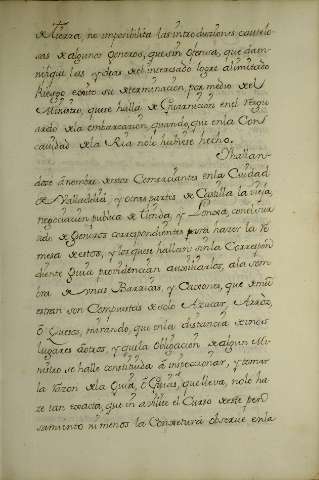 de Tierra, no imposibilita las introduziones, cautelo-
sas de algunos Generos, que sin ofensa, que dam-
nifique leis, y ydeas del interesado logre a limitado
Riesgo exsito su determinacion por medio del
Ministro, que se halla de Guarnicion en el Resgu-
ardo de la embarcacion, quando, que en la Con-
cavidad de la Ria no le hubiese hecho.
Ohallan-
dose a nombre de esos Comerciantes en la Ciudad
de Valladolid, y otras partes de Castilla la vieja,
negociacion publica de tienda, y Lonxa, con el sur-
tido de Generos correspondientes para hazer la Re-
mesa de estos, y los que se hallan sin la Correspon-
diente Guia providencian ausiliarlos, a la som-
bra de unas Barricas, y Caxones, que demu-
estran son Compuestos de solo Azucar, Arroz,
ô Quesos, mirando, que en la distancia de unos
lugares a otros, y que la obligacion de algun Mi-
nistro se halle constituida a inspeccionar, y tomar
la Razon de la Guia, ô Guias, que lleva, no le ha-
ze tan exacta, que en a el Curso de este pen-
samiento ni menos la Consetura observe en la